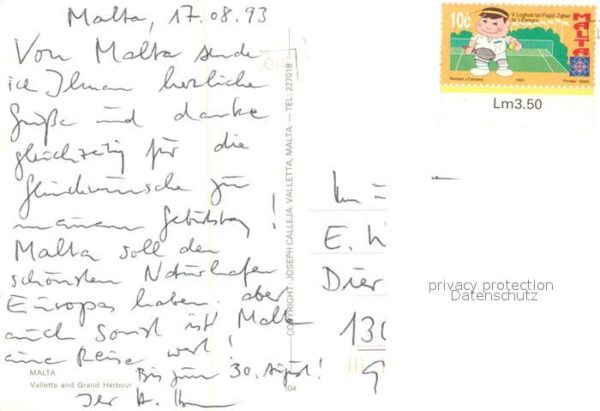 Malta, 17.08.93
Von Malta sende
ich Ihnen herzliche
Grüße und danke
gleichzeitig für die
Glückwünsche zu
meinem Geburtstag!
Malta soll den
schönsten Naturhafen
Europas haben. aber
auch sonst ist Malta
eine Reise wert!
Bis zum 30. August!
Ihr H.
MALTA
Valletta and Grand Harbour
104
COPYRIGHT: JOSEPH CALLEJA, VALLETTA, MALTA. — TEL: 227018
10c
V Logħob tal-Pajjiżi Żgħar
ta' l-Ewropa
MALTA
1993
Lm3.50
E.
Dier
130
privacy protection
Datenschutz